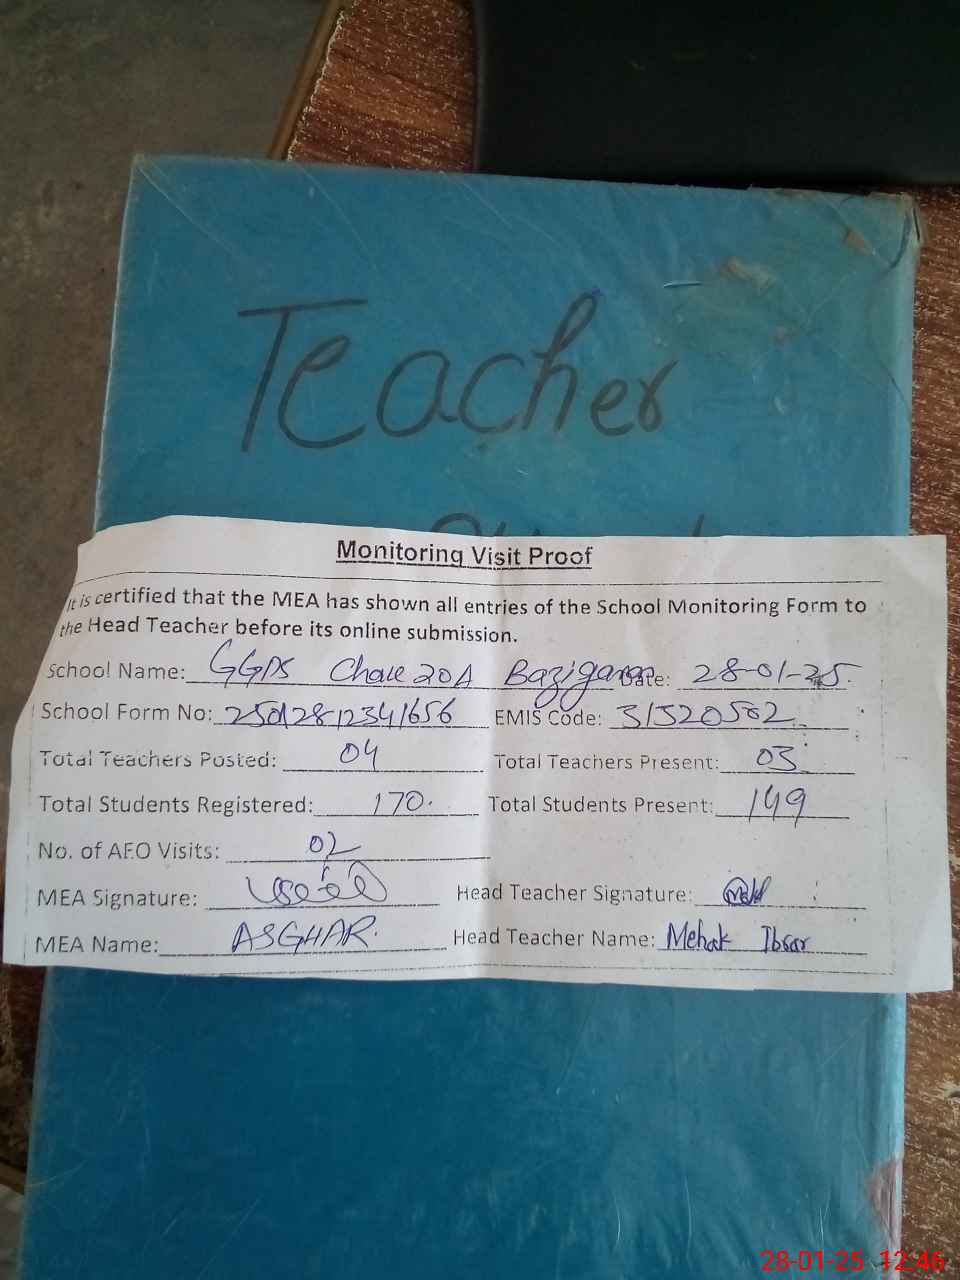 Teacher
Monitoring Visit Proof
It is certified that the MEA has shown all entries of the School Monitoring Form to
the Head Teacher before its online submission.
School Name: GGPS 20A Bazigaran Date: 28-01-25
School Form No: EMIS Code: 31320502
Total Teachers Posted: 04 Total Teachers Present: 03
Total Students Registered: 170. Total Students Present: 149
No. of AEO Visits: 02
MEA Signature: Head Teacher Signature:
MEA Name: ASGHAR. Head Teacher Name: Mehak Ibsar
28-01-25 12:46